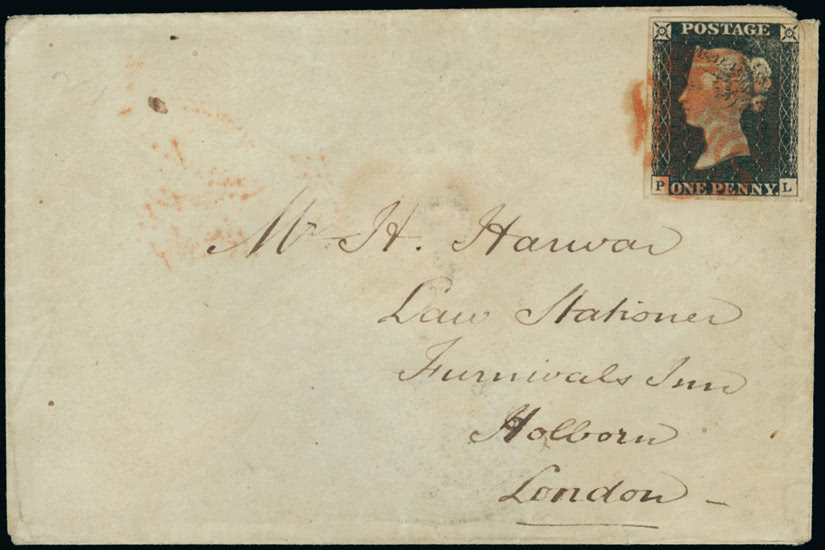 POSTAGE
P ONE PENNY L
Mr H. Harwar
Law Stationer
Furnivals Inn
Holborn
London